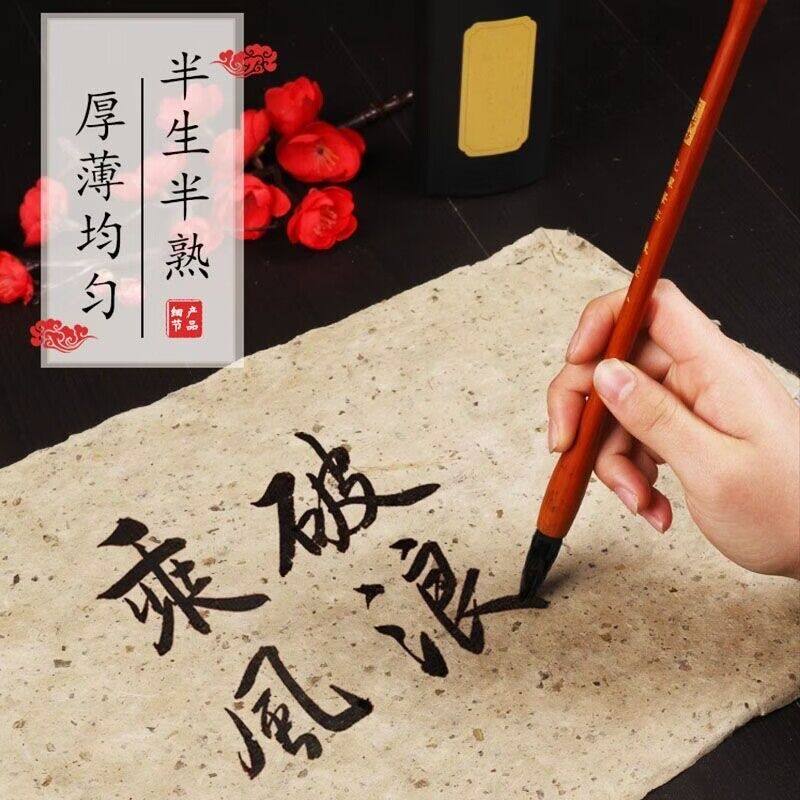 半生半熟
厚薄均匀
产品
细节
乘風
破浪